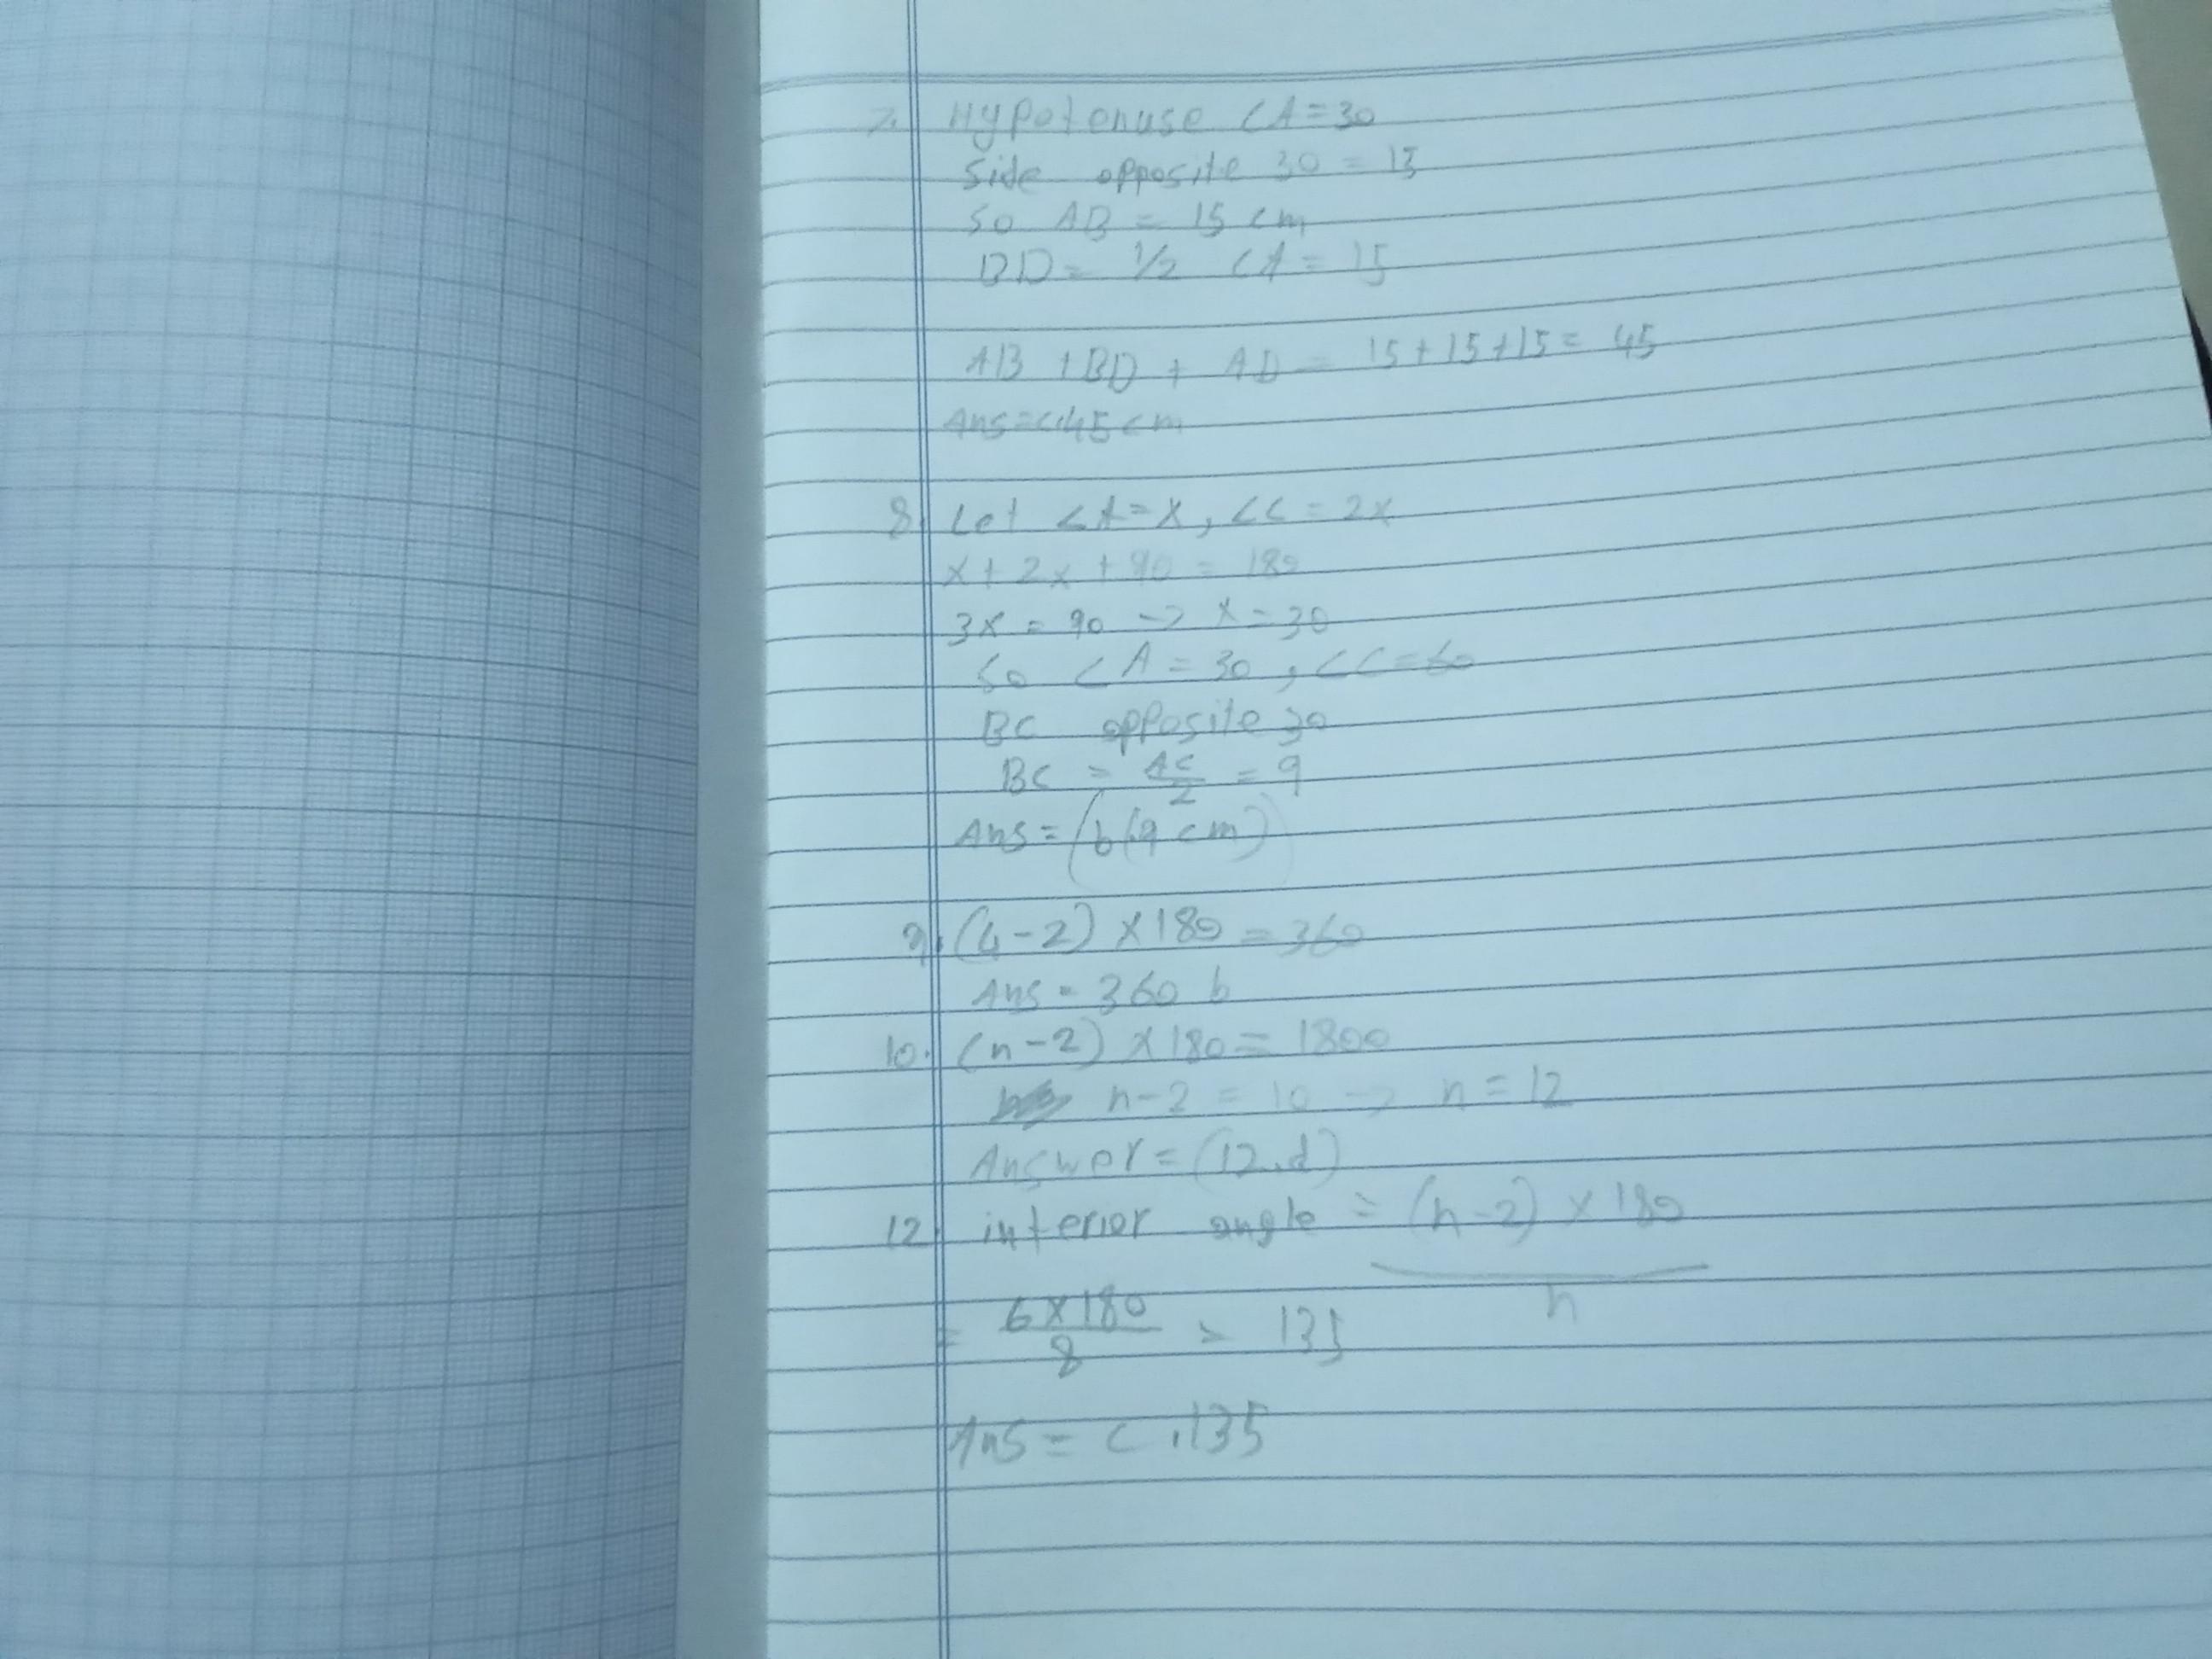 7. Hypotenuse CA = 30
Side opposite 30 = 15
So AB = 15 cm
BD = 1/2 CA = 15
AB + BD + AD = 15 + 15 + 15 = 45
Ans = c.45 cm
8. Let <A = x, <C = 2x
x + 2x + 90 = 180
3x = 90 -> x = 30
So <A = 30, <C = 60
BC opposite 30
BC = AC/2 = 9
Ans = (b(9 cm)
9. (4-2) x 180 = 360
Ans = 360 b
10. (n-2) x 180 = 1800
n-2 = 10 -> n = 12
Answer = (12.d)
12. interior angle = (n-2) x 180 / n
= 6x180/8 = 135
Ans = c.135